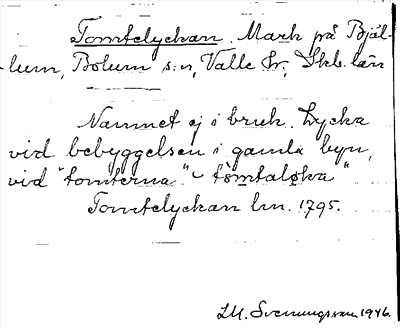 Tomtelyckan. Mark på Bjäl-
lum, Bolum s:n, Valle hr, Skb. län
Namnet ej i bruk. Lycka
vid bebyggelsen i gamla byn,
vid "tomterna". - tômtaløka"
Tomtelyckan lm. 1795.
L M. Svenungsson 1946.